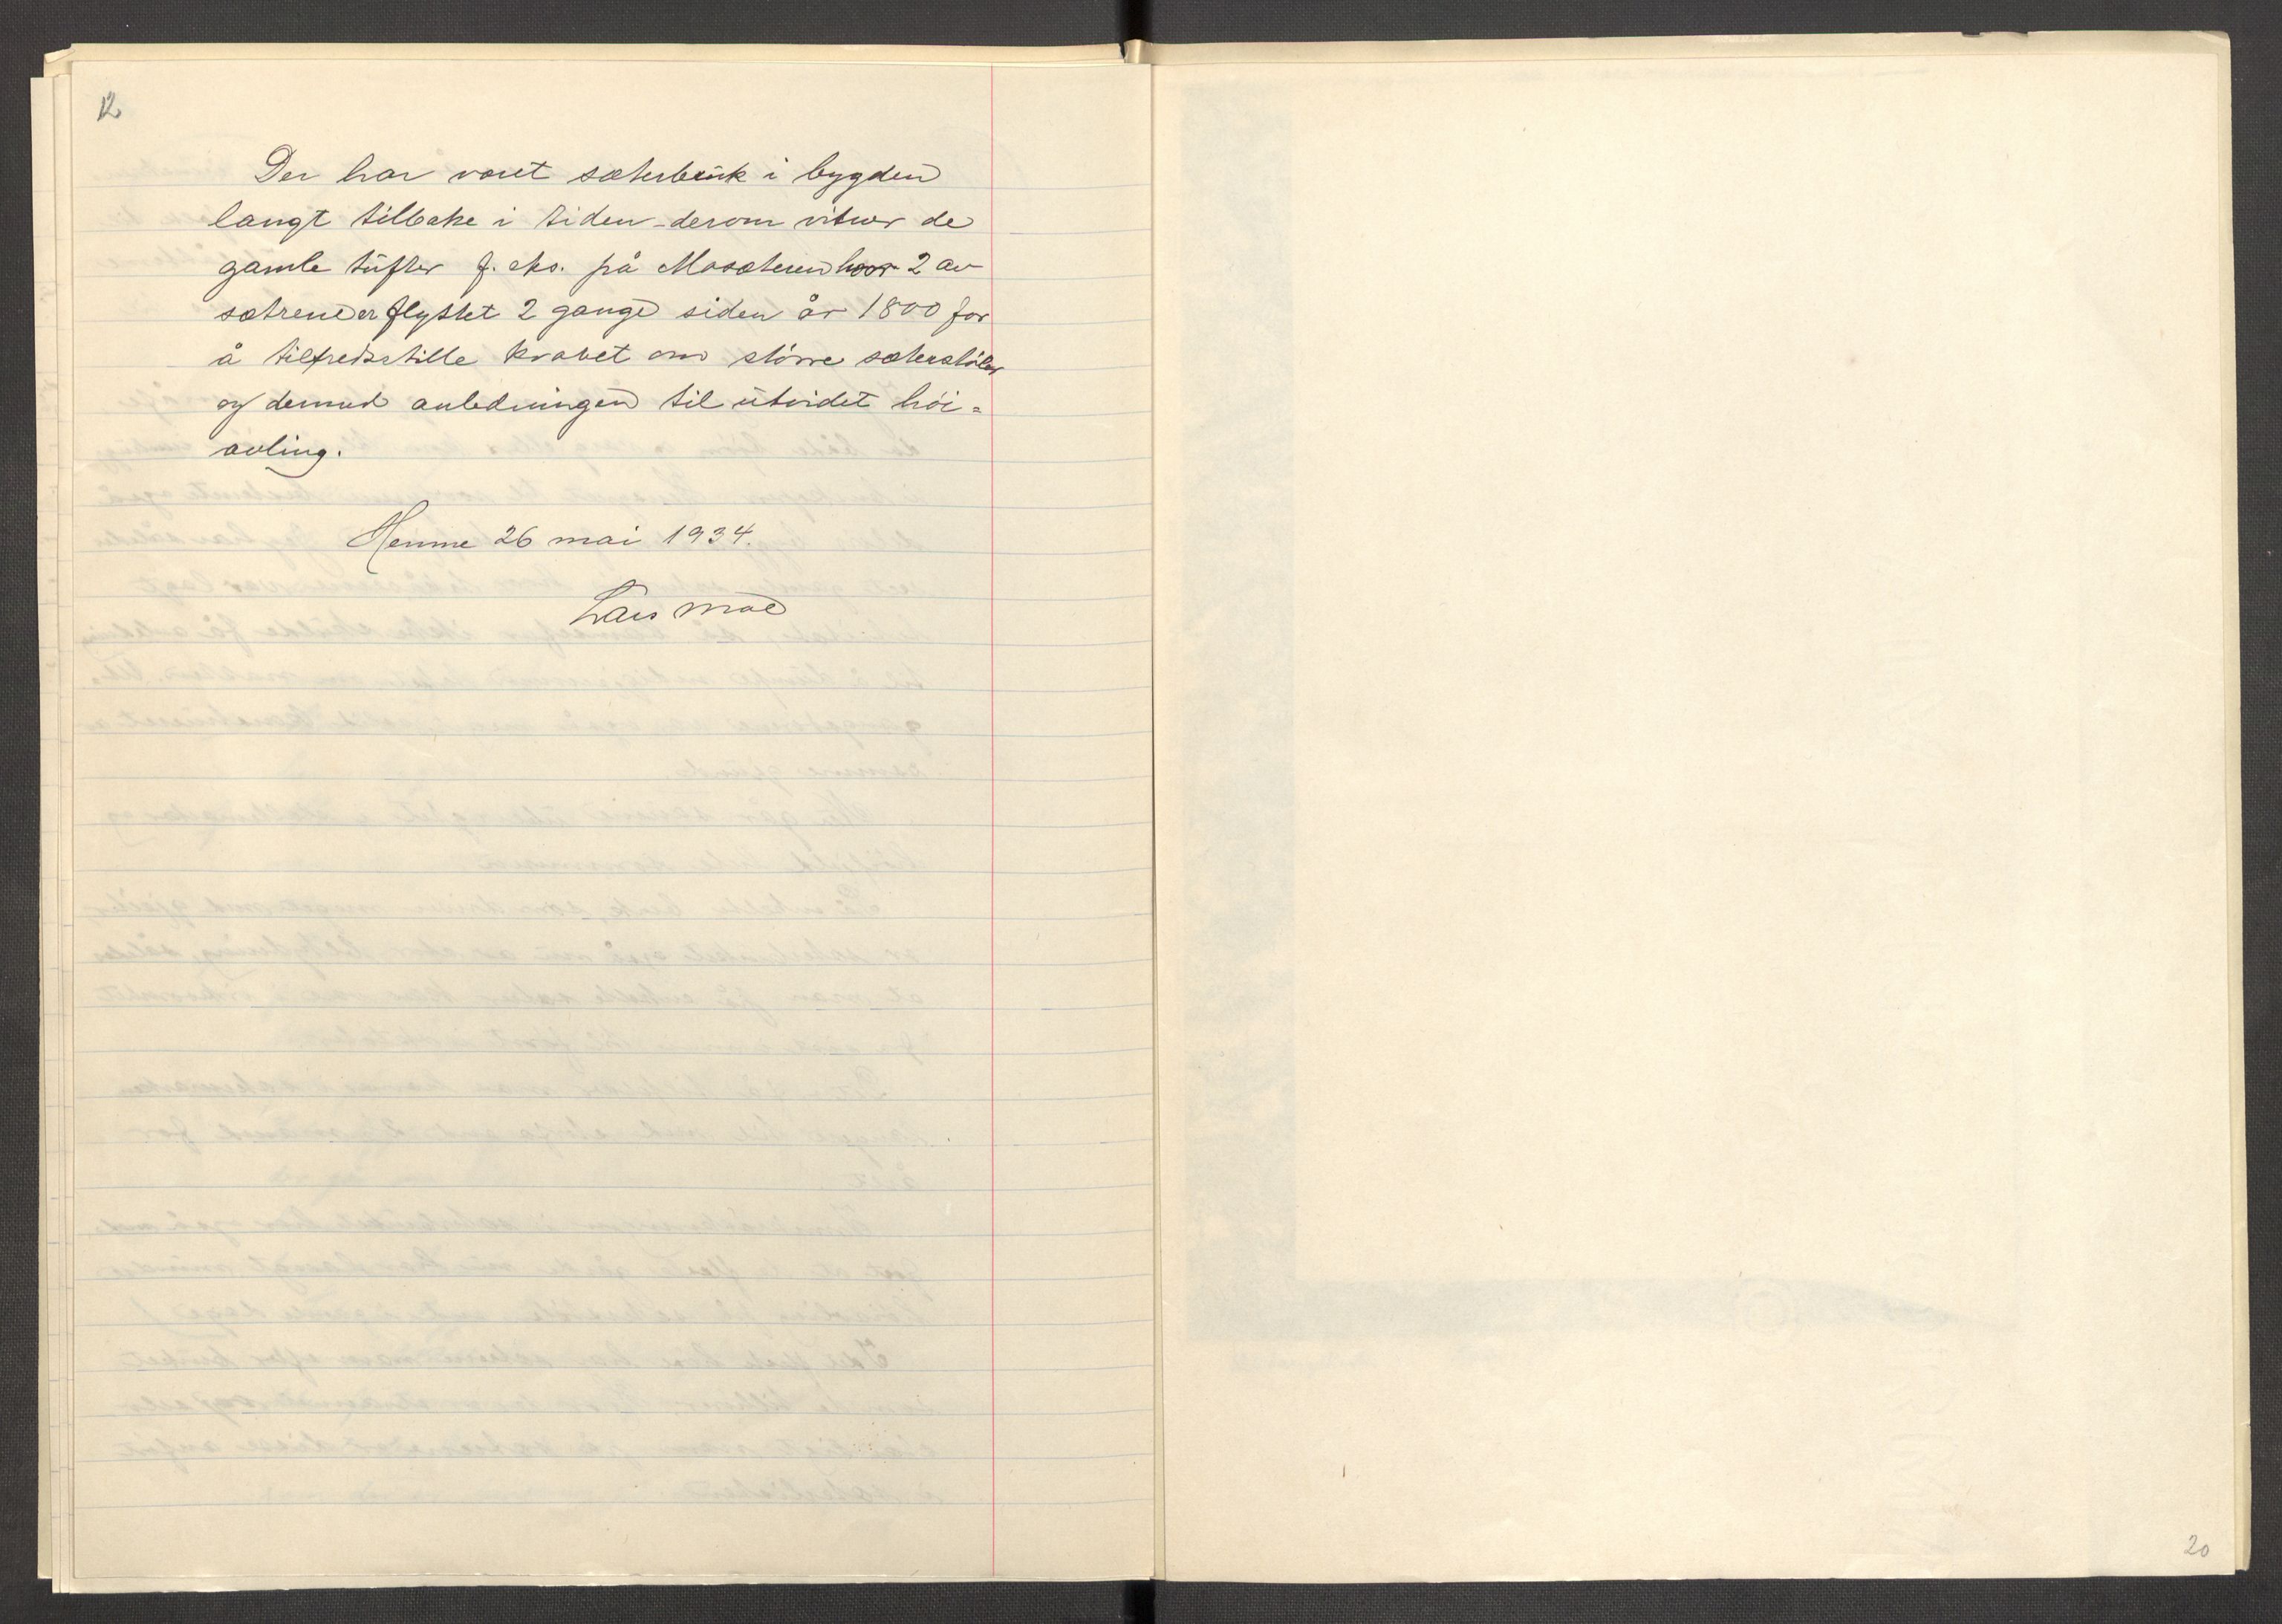 12
Der har været sæterbruk i bygden
langt tilbake i tiden - derom vitner de
gamle tufter f. eks. på Mosæteren hvor 2 av
sætrene er flyttet 2 gange siden år 1800 for
å tilfredsstille kravet om større sæterstøler
og dermed anledningen til utvidet höi=
avling.
Hemne 26 mai 1934.
Lars Moe
20